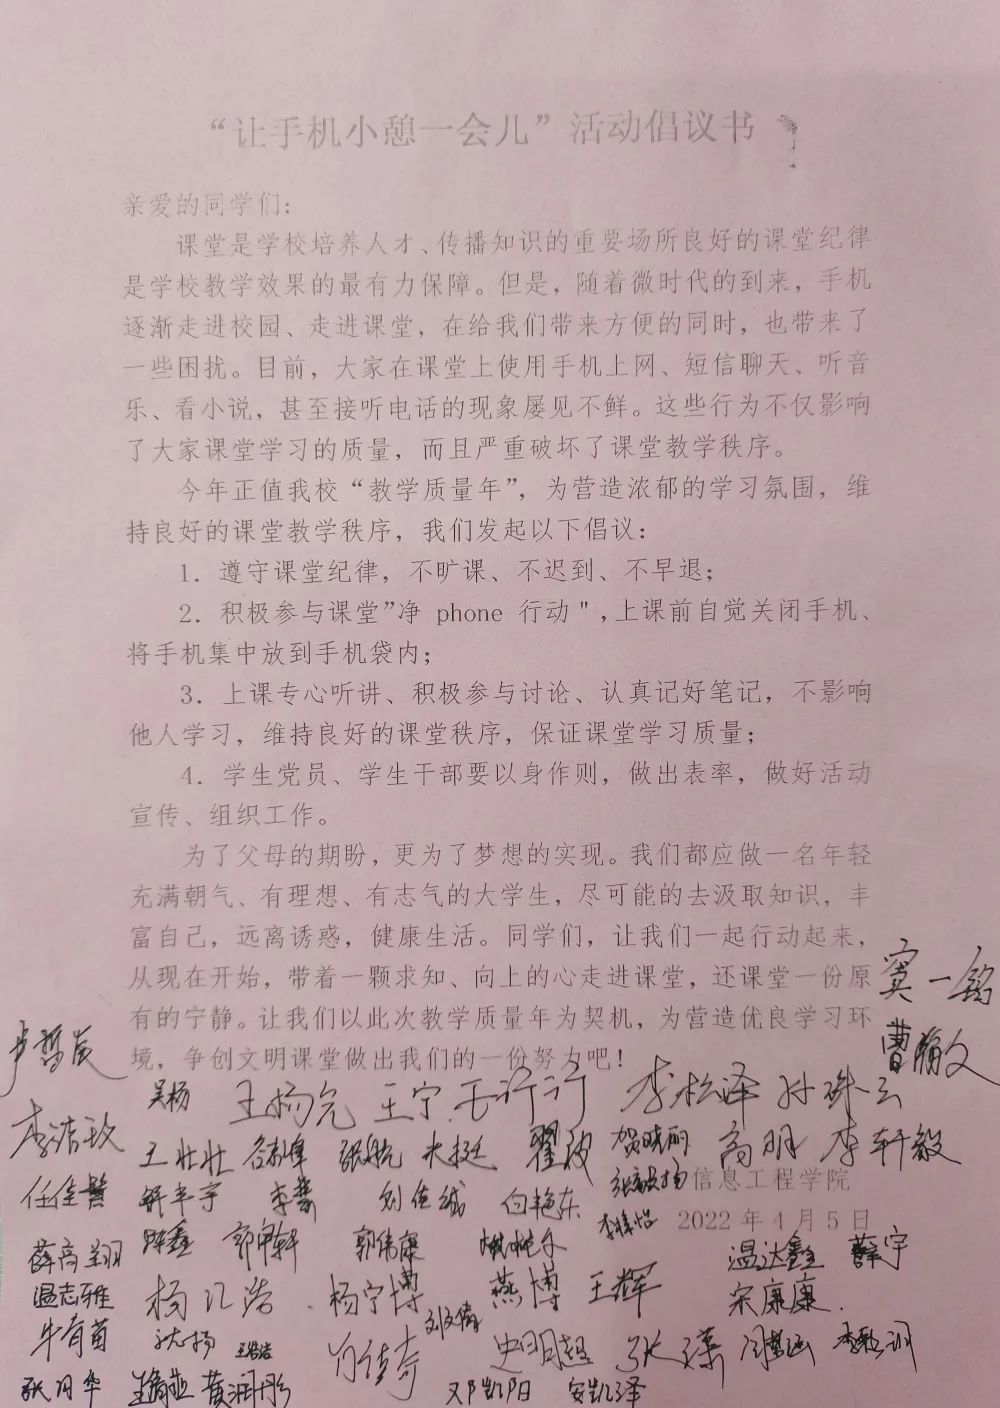 “让手机小憩一会儿”活动倡议书
亲爱的同学们：
课堂是学校培养人才、传播知识的重要场所良好的课堂纪律
是学校教学效果的最有力保障。但是，随着微时代的到来，手机
逐渐走进校园、走进课堂，在给我们带来方便的同时，也带来了
一些困扰。目前，大家在课堂上使用手机上网、短信聊天、听音
乐、看小说，甚至接听电话的现象屡见不鲜。这些行为不仅影响
了大家课堂学习的质量，而且严重破坏了课堂教学秩序。
今年正值我校“教学质量年”，为营造浓郁的学习氛围，维
持良好的课堂教学秩序，我们发起以下倡议：
1．遵守课堂纪律，不旷课、不迟到、不早退；
2．积极参与课堂”净 phone 行动＂，上课前自觉关闭手机、
将手机集中放到手机袋内；
3．上课专心听讲、积极参与讨论、认真记好笔记，不影响
他人学习，维持良好的课堂秩序，保证课堂学习质量；
4．学生党员、学生干部要以身作则，做出表率，做好活动
宣传、组织工作。
为了父母的期盼，更为了梦想的实现。我们都应做一名年轻
充满朝气、有理想、有志气的大学生，尽可能的去汲取知识，丰
富自己，远离诱惑，健康生活。同学们，让我们一起行动起来，
从现在开始，带着一颗求知、向上的心走进课堂，还课堂一份原
有的宁静。让我们以此次教学质量年为契机，为营造优良学习环
境，争创文明课堂做出我们的一份努力吧！
窦一铭
曹瀚文
卢哲辰
吴杨 王杨允 王宁 李松泽
王壮壮 张航 翟波 贺晓丽 高明 李轩毅
信息工程学院
任佳赟 白艳东
2022 年 4 月 5 日
薛高翔 陈鑫 郭伟康 温达鑫 薛宇
温志雅 杨汇浩 杨宁博 燕博 王辉 宋康康
牛有苗 沈扬 刘文倩 史明超
张月华 黄润彤 邓凯阳 安凯泽